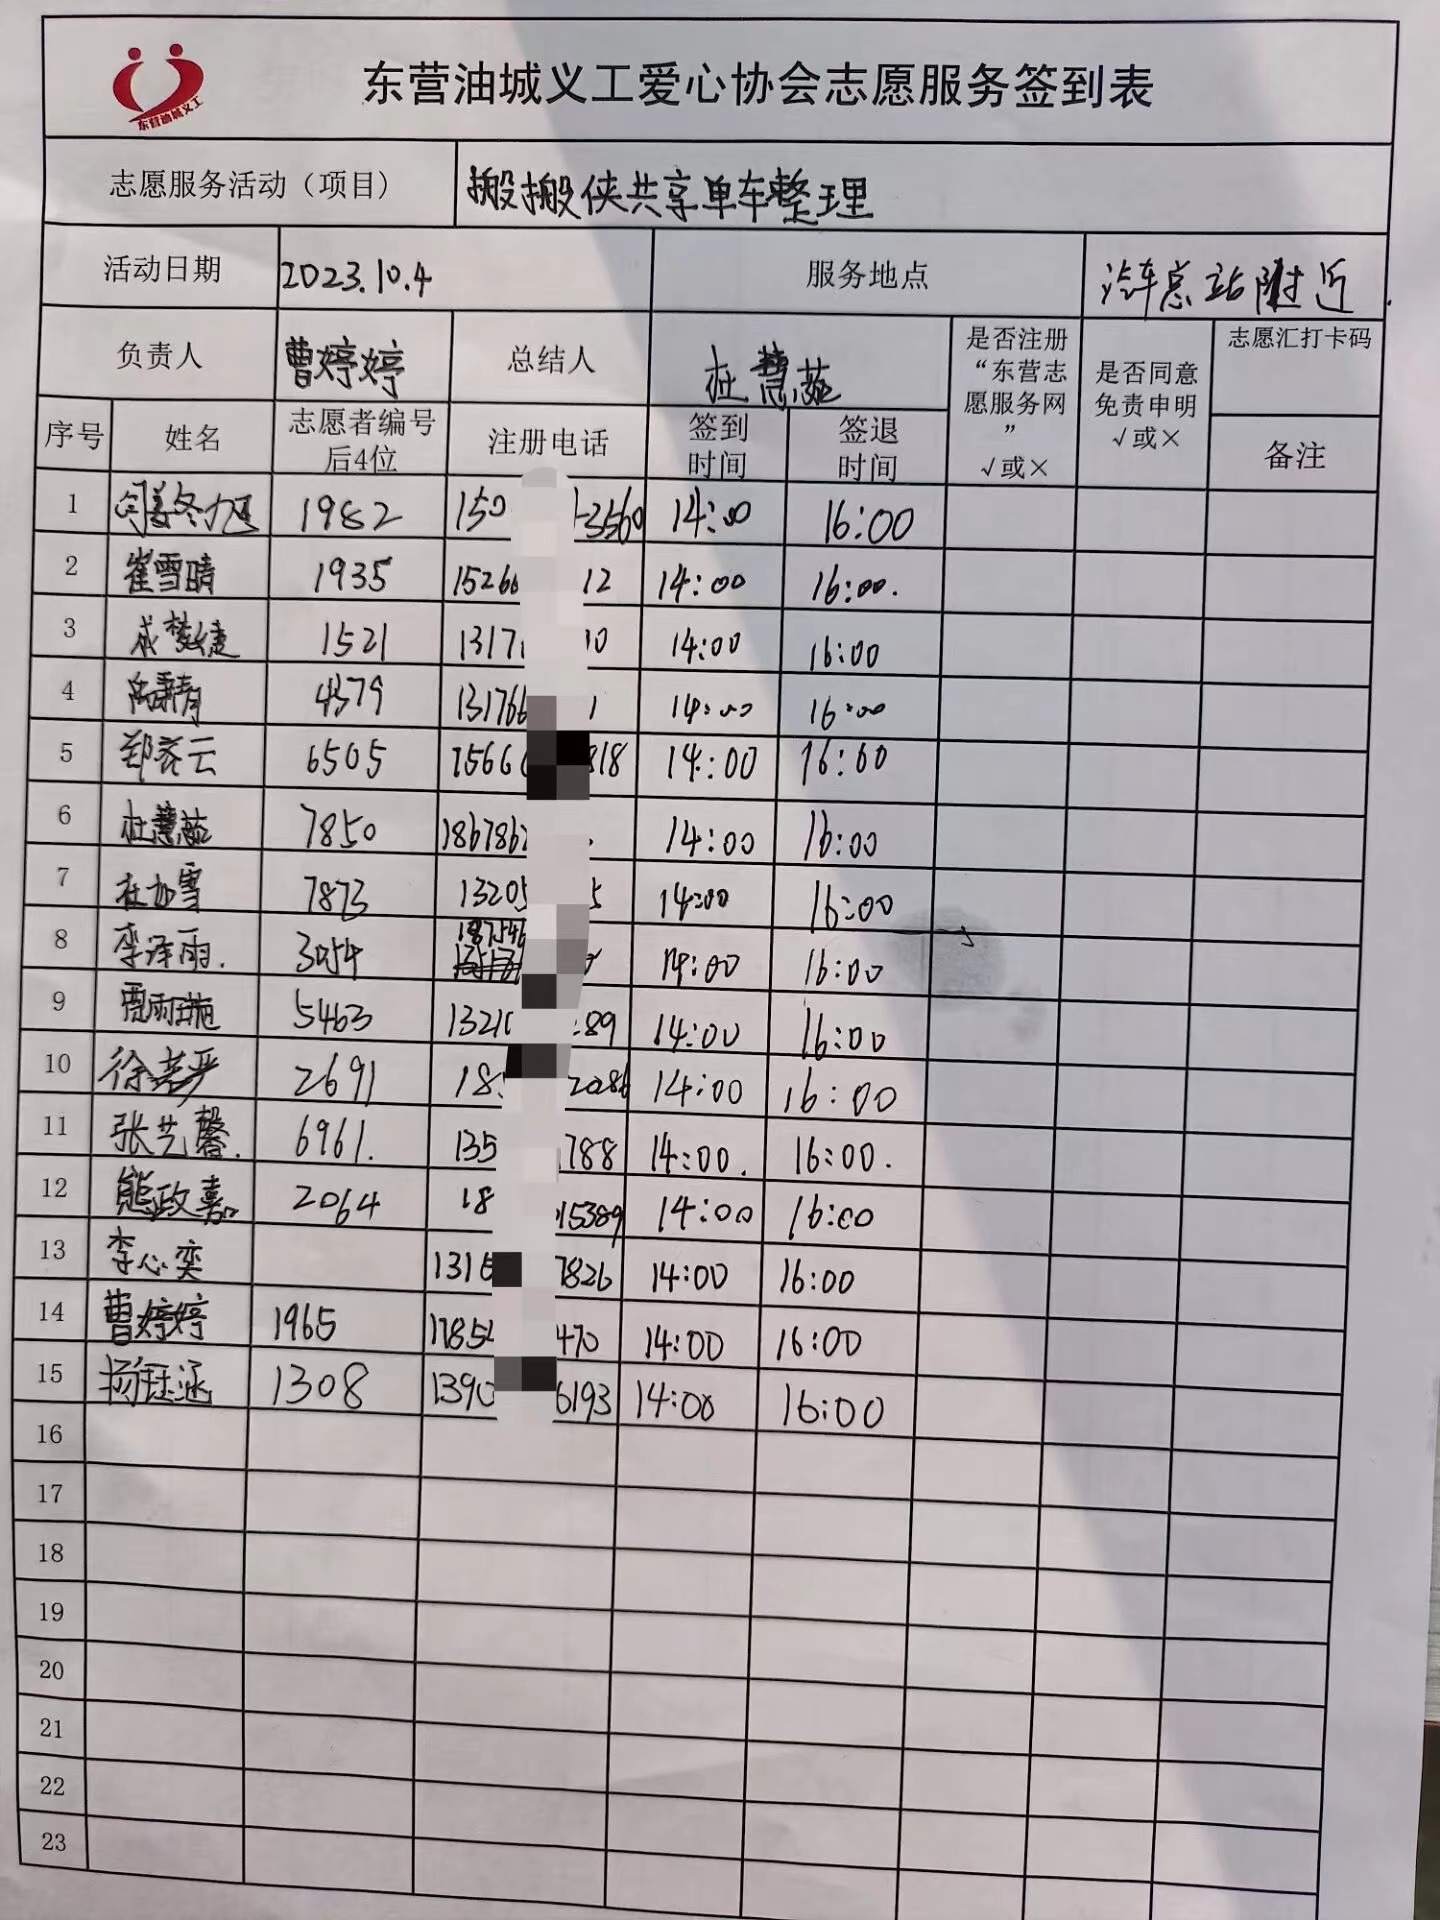 东营油城义工
东营油城义工爱心协会志愿服务签到表
志愿服务活动（项目） 搬搬侠共享单车整理
活动日期 2023.10.4 服务地点 汽车总站附近
负责人 曹婷婷 总结人 杜慧茹 是否注册“东营志愿服务网” √或× 是否同意免责申明 √或× 志愿汇打卡码
序号 姓名 志愿者编号后4位 注册电话 签到时间 签退时间 备注
1 1982 150 3560 14:00 16:00
2 崔雪晴 1935 15266 12 14:00 16:00.
3 成梦婕 1521 1317 10 14:00 16:00
4 4379 131766 1 14:00 16:00
5 郑裳云 6505 15666 818 14:00 16:00
6 杜慧茹 7850 186786 14:00 16:00
7 杜如雪 7873 13205 5 14:00 16:00
8 李泽雨. 3054 187546 14:00 16:00
9 贾雨璇 5463 1321 89 14:00 16:00
10 徐 2691 18 2086 14:00 16:00
11 张艺馨. 6961. 135 788 14:00. 16:00.
12 熊政嘉 2064 18 15389 14:00 16:00
13 李心奕 1316 7826 14:00 16:00
14 曹婷婷 1965 17852 470 14:00 16:00
15 杨钰涵 1308 1390 6193 14:00 16:00
16
17
18
19
20
21
22
23